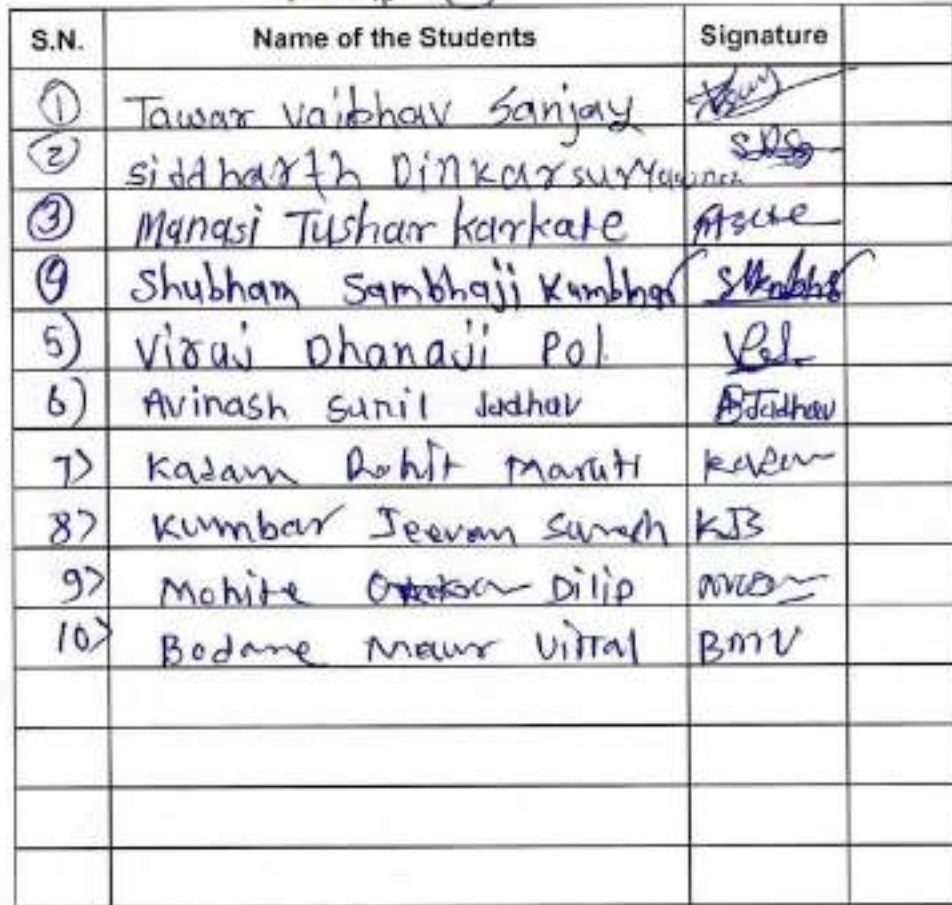 S.N. Name of the Students Signature
1 Tawar Vaibhav Sanjay
2 Siddharth Dinkar suryawanshi SDS
3 Manasi Tushar karkate
4 Shubham Sambhaji Kumbhar
5) Viraj Dhanaji Pol. Pol
6) Avinash Sunil Jadhav ASJadhav
7) Kadam Rohit Maruti Kadam
8) Kumbar Jeevan Suresh KJB
9) Mohite Dilip
10) Bodane Vittal BMV